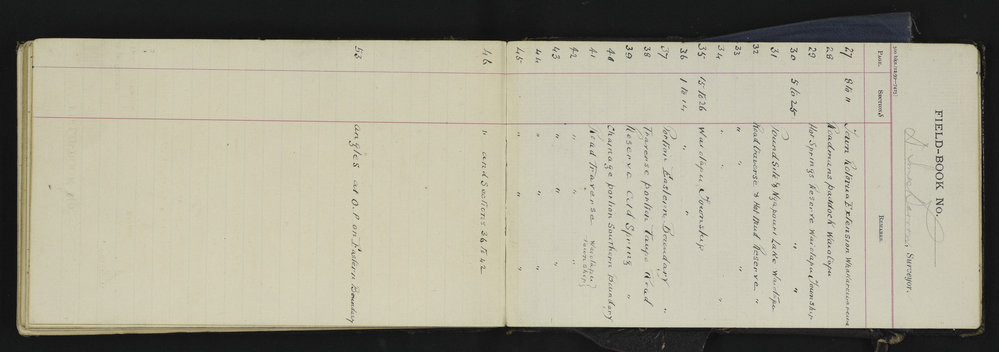 FIELD-BOOK No.
Surveyor.
PAGE. SECTIONS REMARKS.
27 8 to 11 Town Rotorua Extension Whakarewarewa
28 Roadmans paddock Waiotapu
29 Hot Springs Reserve Waiotapu Township
30 5 to 25 " "
31 Pound Site & Ngapouri Lake Waiotapu
32 Road traverse & Hot Mud Reserve "
33 " " "
34 " "
35 15 to 26 Waiotapu Township
36 1 to 14 " "
37 Portion Eastern Boundary "
38 Traverse portion Taupo Road
39 Reserve Cold Spring "
40 Chainage portion Southern Boundary
41 Road Traverse Waiotapu Township
42 " " "
43 " " " "
44 " " "
45 " " "
46 " and Sections 36 to 42
53 angles at O.P. on Eastern Boundary